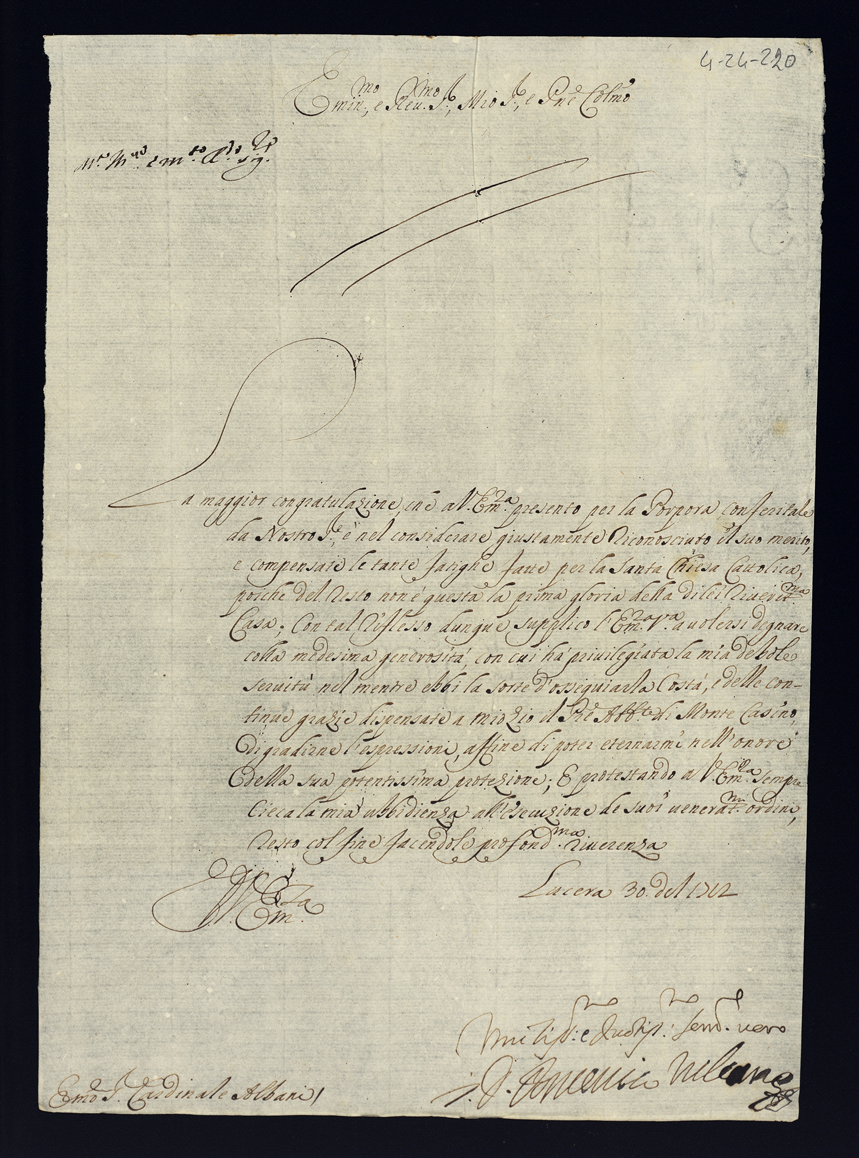 4-24-220
Emin.mo, e Rev.mo Sr., Mio Sr., e Pne Colmo
La maggior congratulazione, che a V. Em.za presento per la Porpora conferitale
da Nostro Sre, è nel considerare giustamente riconosciuto il suo merito,
e compensate le tante fatighe fatte per la Santa Chiesa Cattolica,
poiche del resto non è questa la prima gloria della di lei riverit.ma
Casa; Con tal riflesso dunque supplico l'Em.za V.ra a volersi degnare
colla medesima generosità, con cui hà privilegiata la mia debole
servitù nel mentre ebbi la sorte d'ossequiarla Costà, e delle con-
tinue grazie dispensate a mio Zio il Pre Abb.te di Monte Casino,
di gradirne l'espressioni, affine di poter eternarmi nell'onore
della sua potentissima protezione; E protestando a V. Em.za sempre
Cieca la mia ubbidienza all'esecuzione de suoi venerat.mi ordini,
resto col fine facendole profond.ma riverenza
Di V. Em.za
Lucera 30. del 1712
Umilis.mo e Devotis.mo Serv.re vero
Emo Sr. Cardinale Albani